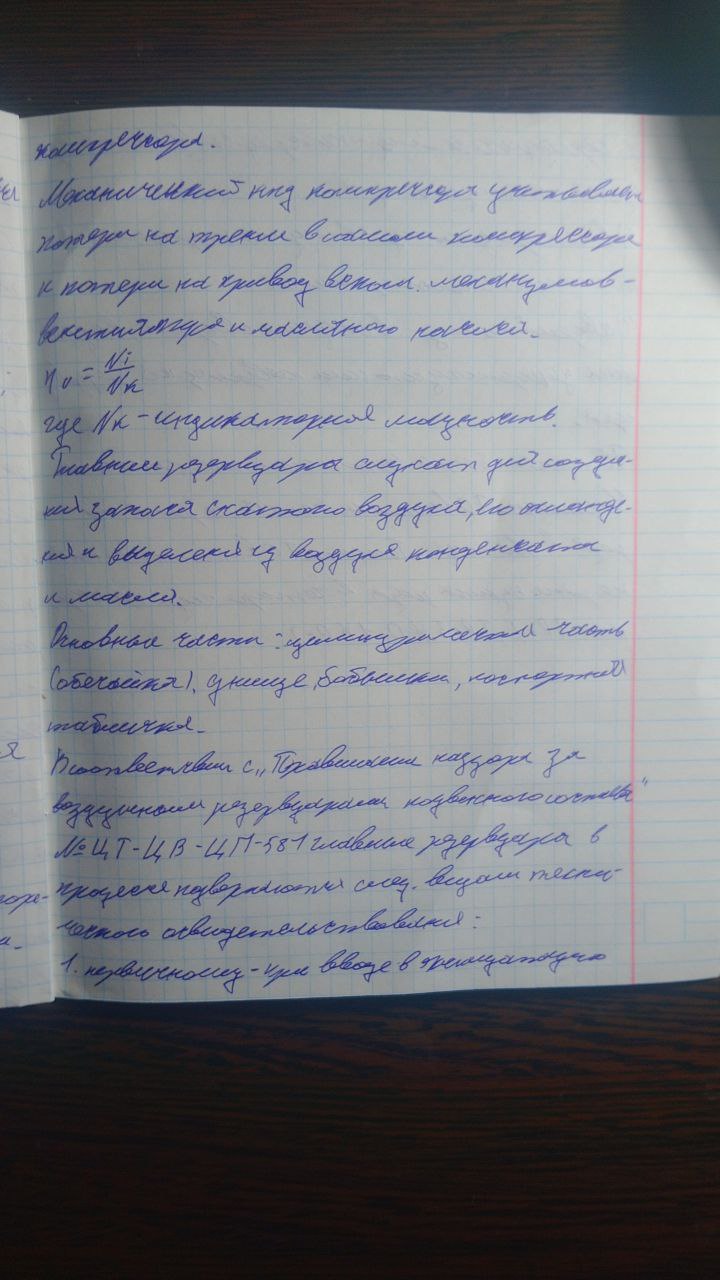 компрессора.
Механический кпд компрессора учитывает
потери на трение в самом компрессоре
и потери на привод вспом. механизмов -
вентилятора и масляного насоса.
η = Ni/Nк
где Nк - индикаторная мощность.
Главные резервуары служат для созда-
ния запаса сжатого воздуха, его охлажде-
ния и выделения из воздуха конденсата
и масла.
Основные части: цилиндрическая часть
(обечайка), днище, бобышки, паспортная
табличка.
В соответствии с „Правилами надзора за
воздушными резервуарами подвижного состава"
№ ЦТ-ЦВ-ЦП-581 главные резервуары в
процессе подвергаются след. видам техни-
ческого освидетельствования:
1. первичному - при вводе в эксплуатацию